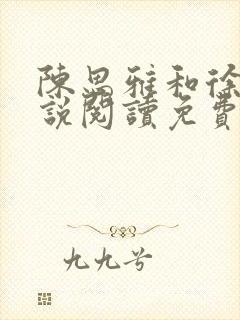 陳思雅和徐
說閱讀免費
九九兮